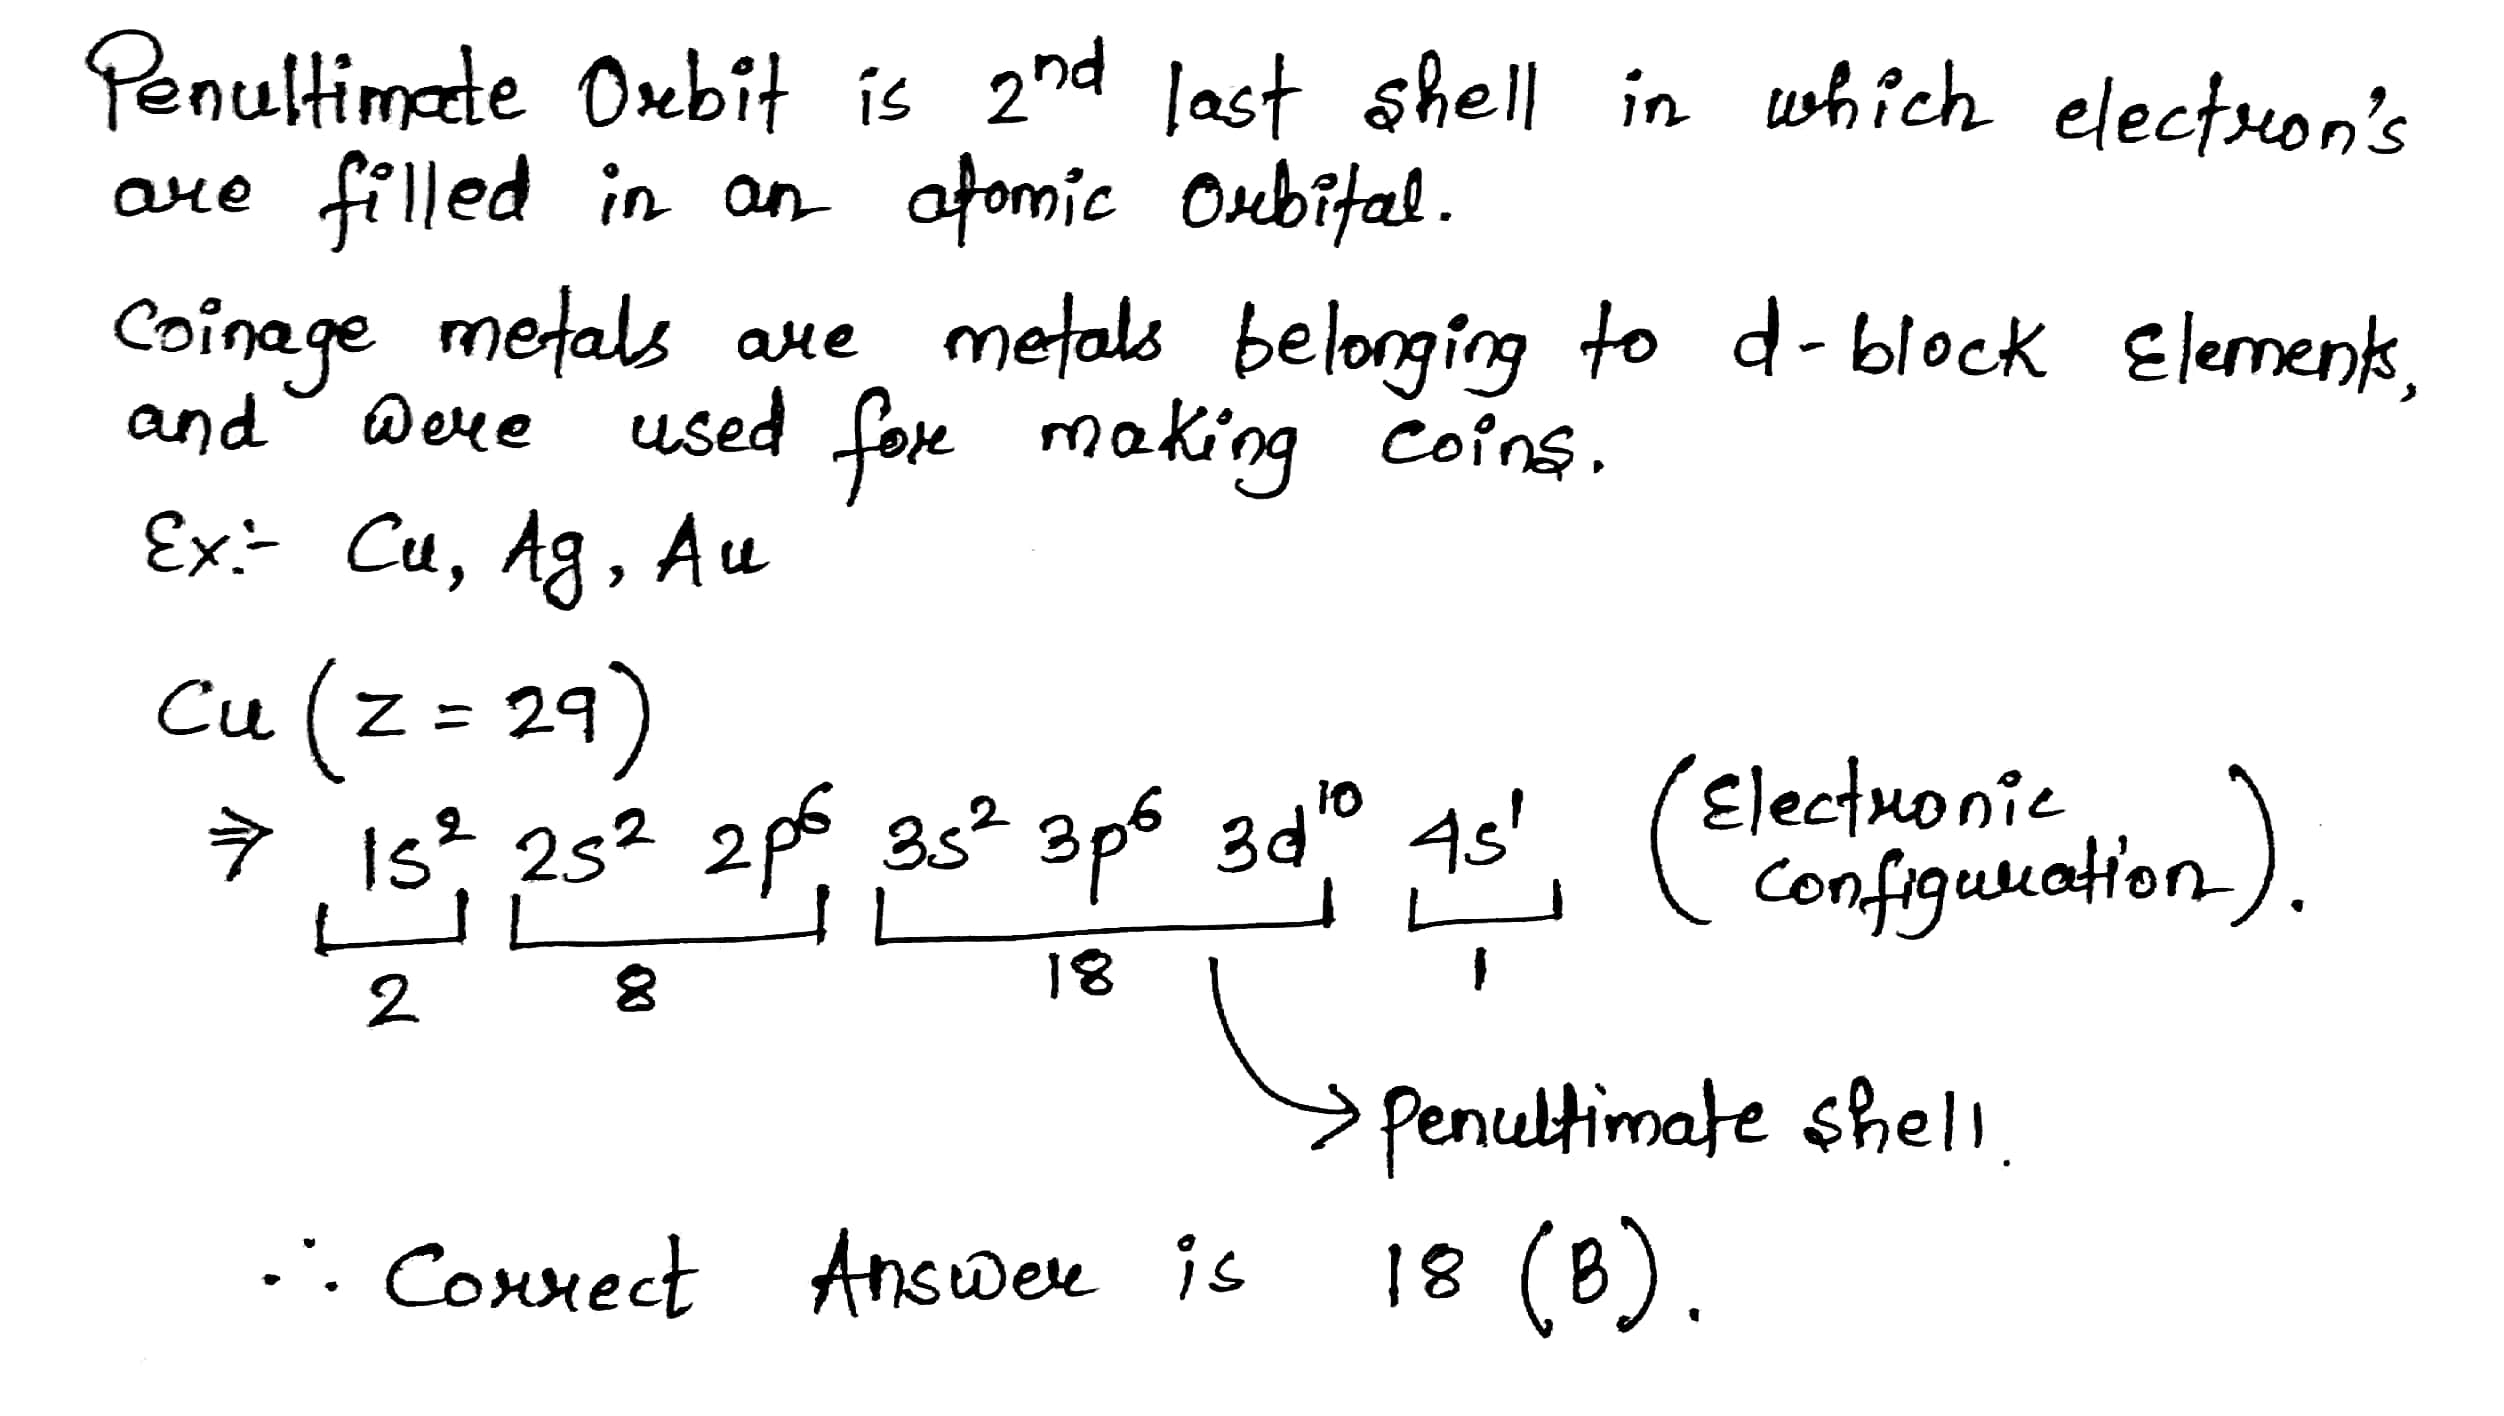 Penultimate Orbit is 2nd last shell in which electron's
are filled in an atomic Orbital.
Coinage metals are metals belonging to d-block Elements,
and were used for making coins.
Ex:- Cu, Ag, Au
Cu (Z = 29)
⇒ 1s² 2s² 2p⁶ 3s² 3p⁶ 3d¹⁰ 4s¹ (Electronic configuration).
2 8 18 1
→ Penultimate shell.
∴ Correct Answer is 18 (B).